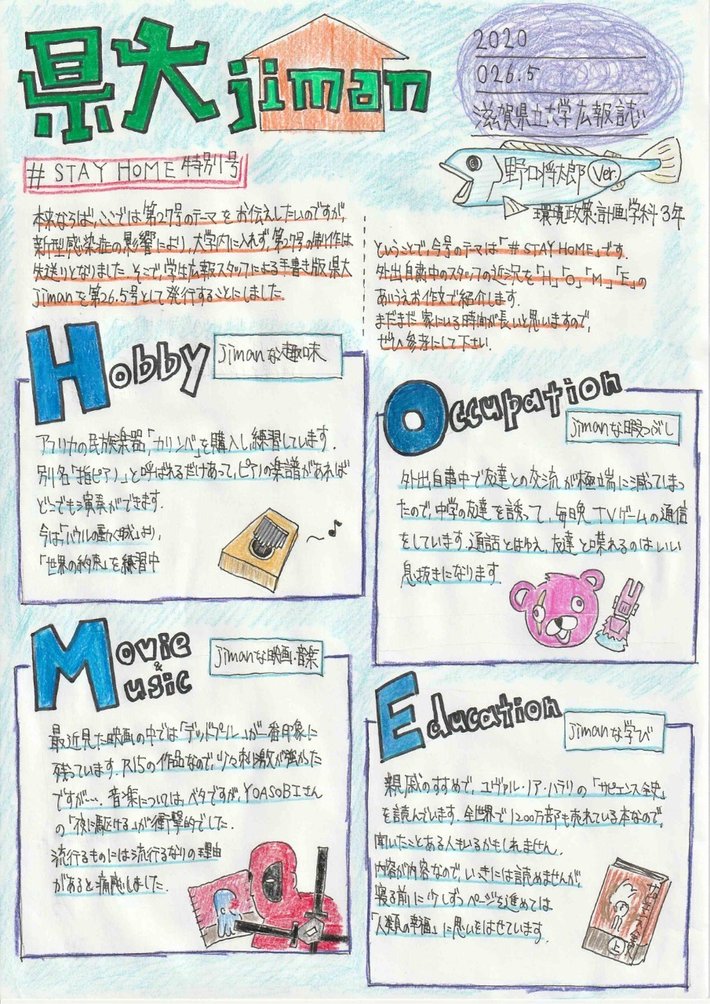 県大jiman
2020
026.5
滋賀県立大学広報誌
野口将太郎 Ver.
環境政策・計画学科3年
# STAY HOME 特別号
本来ならば、ここでは第27号のテーマをお伝えしたいのですが、
新型感染症の影響により、大学内に入れず、第27号の制作は
先送りとなりました。そこで学生広報スタッフによる手書き版県大
jimanを第26.5号として発行することにしました。
ということで今号のテーマは「#STAY HOME」です。
外出自粛中のスタッフの近況を「H」「O」「M」「E」の
あいうえお作文で紹介します。
まだまだ家にいる時間が長いと思いますので、
ぜひ参考にして下さい。
Hobby
jimanな趣味
アフリカの民族楽器「カリンバ」を購入し練習しています。
別名「指ピアノ」と呼ばれるだけあって、ピアノの楽譜があれば
どこでも演奏ができます。
今は「ハウルの動く城」より、
「世界の約束」を練習中
Occupation
jimanな暇つぶし
外出自粛中で友達との交流が極端に減ってしまっ
たので、中学の友達を誘って、毎日晩TVゲームの通信
をしています。通話とはゆえ、友達と喋れるのはいい
息抜きになります。
Movie
&
Music
jimanな映画・音楽
最近見た映画の中では「デッドプール」が一番印象に
残っています。R15の作品なので、少々刺激が強かった
ですが…。音楽については、ベタですが、YOASOBIさん
の「夜に駆ける」が衝撃的でした。
流行るものには流行るなりの理由
があると痛感しました。
Education
jimanな学び
親戚のすすめで、ユヴァル・ノア・ハラリの「サピエンス全史」
を読んでいます。全世界で1200万部も売れている本なので、
聞いたことある人もいるかもしれません。
内容が内容なので、いっきには読めませんが、
寝る前に少しずつページを進めては
「人類の幸福」に思いをはせています。
サピエンス全史
上